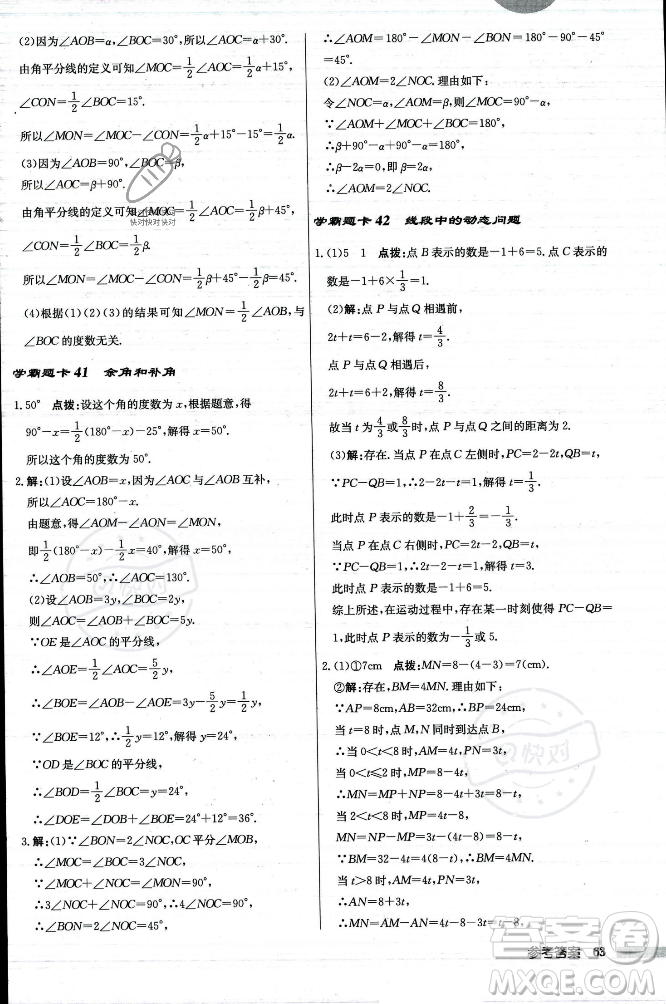 (2)因为∠AOB=α,∠BOC=30°,所以∠AOC=α+30°.
由角平分线的定义可知∠MOC=1/2∠AOC=1/2α+15°,
∠CON=1/2∠BOC=15°.
所以∠MON=∠MOC-∠CON=1/2α+15°-15°=1/2α.
(3)因为∠AOB=90°,∠BOC=β,
所以∠AOC=β+90°.
由角平分线的定义可知∠MOC=1/2∠AOC=1/2β+45°,
∠CON=1/2∠BOC=1/2β.
所以∠MON=∠MOC-∠CON=1/2β+45°-1/2β=45°.
(4)根据(1)(2)(3)的结果可知∠MON=1/2∠AOB,与
∠BOC的度数无关.
学霸题卡 41 余角和补角
1.50° 点拨:设这个角的度数为x,根据题意,得
90°-x=1/2(180°-x)-25°,解得x=50°.
所以这个角的度数为50°.
2.解:(1)设∠AOB=x,∵∠AOC与∠AOB互补,
∴∠AOC=180°-x.
由题意,得∠AOM-∠AON=∠MON,
即1/2(180°-x)-1/2x=40°,解得x=50°,
∴∠AOB=50°,∴∠AOC=130°.
(2)设∠AOB=3y,∠BOC=2y,
则∠AOC=∠AOB+∠BOC=5y.
∵OE是∠AOC的平分线,
∴∠AOE=1/2∠AOC=5/2y,
∴∠BOE=∠AOB-∠AOE=3y-5/2y=1/2y.
∵∠BOE=12°,∴1/2y=12°,解得y=24°,
∵OD是∠BOC的平分线,
∴∠BOD=1/2∠BOC=y=24°,
∴∠DOE=∠DOB+∠BOE=24°+12°=36°.
3.解:(1)∵∠BON=2∠NOC,OC平分∠MOB,
∴∠MOC=∠BOC=3∠NOC.
∵∠MOC+∠NOC=∠MON=90°,
∴3∠NOC+∠NOC=90°,
∴4∠NOC=90°,
∴∠BON=2∠NOC=45°,
∴∠AOM=180°-∠MON-∠BON=180°-90°-45°
=45°.
(2)∠AOM=2∠NOC.理由如下:
令∠NOC=α,∠AOM=β,则∠MOC=90°-α.
∵∠AOM+∠MOC+∠BOC=180°,
∴β+90°-α+90°-α=180°,
∴β-2α=0,即β=2α,
∴∠AOM=2∠NOC.
学霸题卡 42 线段中的动态问题
1.(1)5 1 点拨:点B表示的数是-1+6=5.点C表示的
数是-1+6×1/3=1.
(2)解:点P与点Q相遇前,
2t+t=6-2,解得t=4/3;
点P与点Q相遇后,
2t+t=6+2,解得t=8/3.
故当t为4/3或8/3时,点P与点Q之间的距离为2.
(3)解:存在.当点P在点C左侧时,PC=2-2t,QB=t,
∵PC+QB=1,∴2-2t+t=1,解得t=1.
此时点P表示的数是-1+2/3=-1/3.
当点P在点C右侧时,PC=2t-2,QB=t,
∵PC+QB=1,∴2t-2+t=1,解得t=1.
此时点P表示的数是-1+6=5.
综上所述,在运动过程中,存在某一时刻使得PC+QB=
1,此时点P表示的数为-1/3或5.
2.(1)①7cm 点拨:MN=8-(4-3)=7(cm).
②解:存在,BM=4MN.理由如下:
∵AP=8cm,AB=32cm,∴BP=24cm,
当t=8时,点M,N同时到达点B,
∴当0<t<8时,AM=4t,PN=3t.
当0<t≤2时,MP=8-4t,
∴MN=MP+NP=8-4t+3t=8-t.
当2<t<8时,MP=4t-8,
∴MN=PN-MP=3t-(4t-8)=8-t.
∵BM=32-4t=4(8-t),
∴BM=4MN.
当t>8时,AM=4t,PN=3t,
∴AN=8+3t,
∴MN=AM-AN=4t-(8+3t)=t-8,
参考答案 63
快对快对快对
快对
快对
答案圈
MXQE.COM